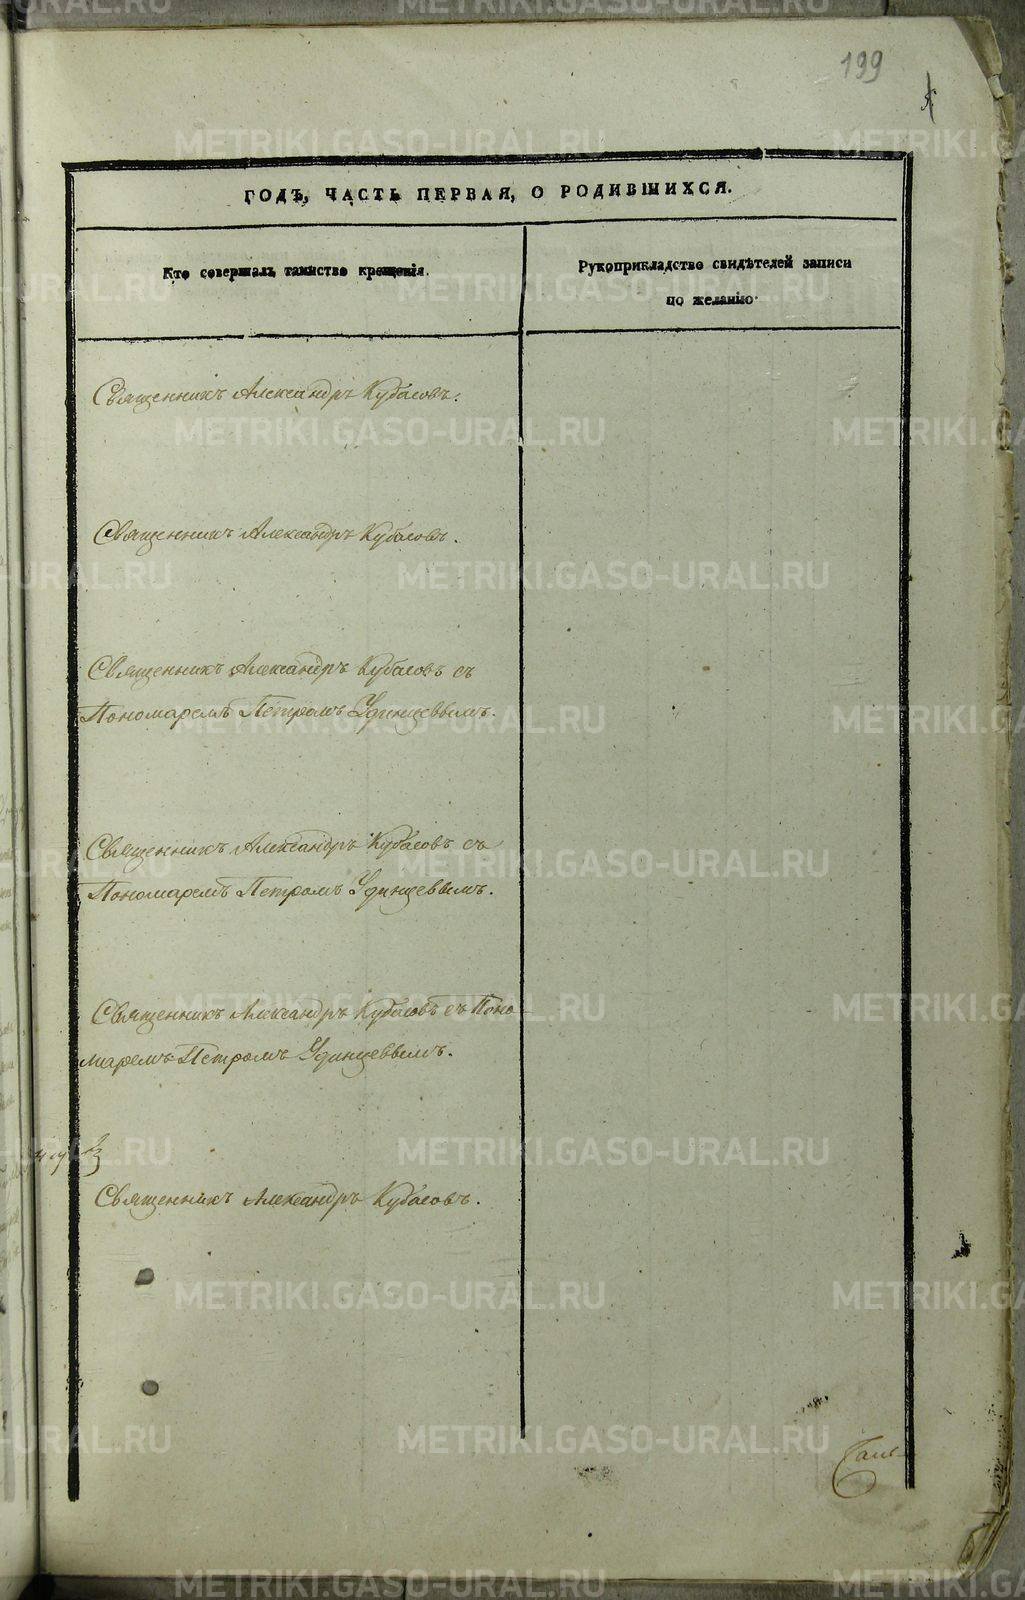 199
ГОДЪ, ЧАСТЬ ПЕРВАЯ, О РОДИВШИХСЯ.
Кто совершалъ таинство крещенія.
Рукоприкладство свидѣтелей записи
по желанію.
Священникъ Александръ Кубасовъ.
Священникъ Александръ Кубасовъ.
Священникъ Александръ Кубасовъ съ
Пономаремъ Петромъ Удинцевымъ.
Священникъ Александръ Кубасовъ съ
Пономаремъ Петромъ Удинцевымъ.
Священникъ Александръ Кубасовъ съ Поно
маремъ Петромъ Удинцевымъ.
Священникъ Александръ Кубасовъ.
METRIKI.GASO-URAL.RU